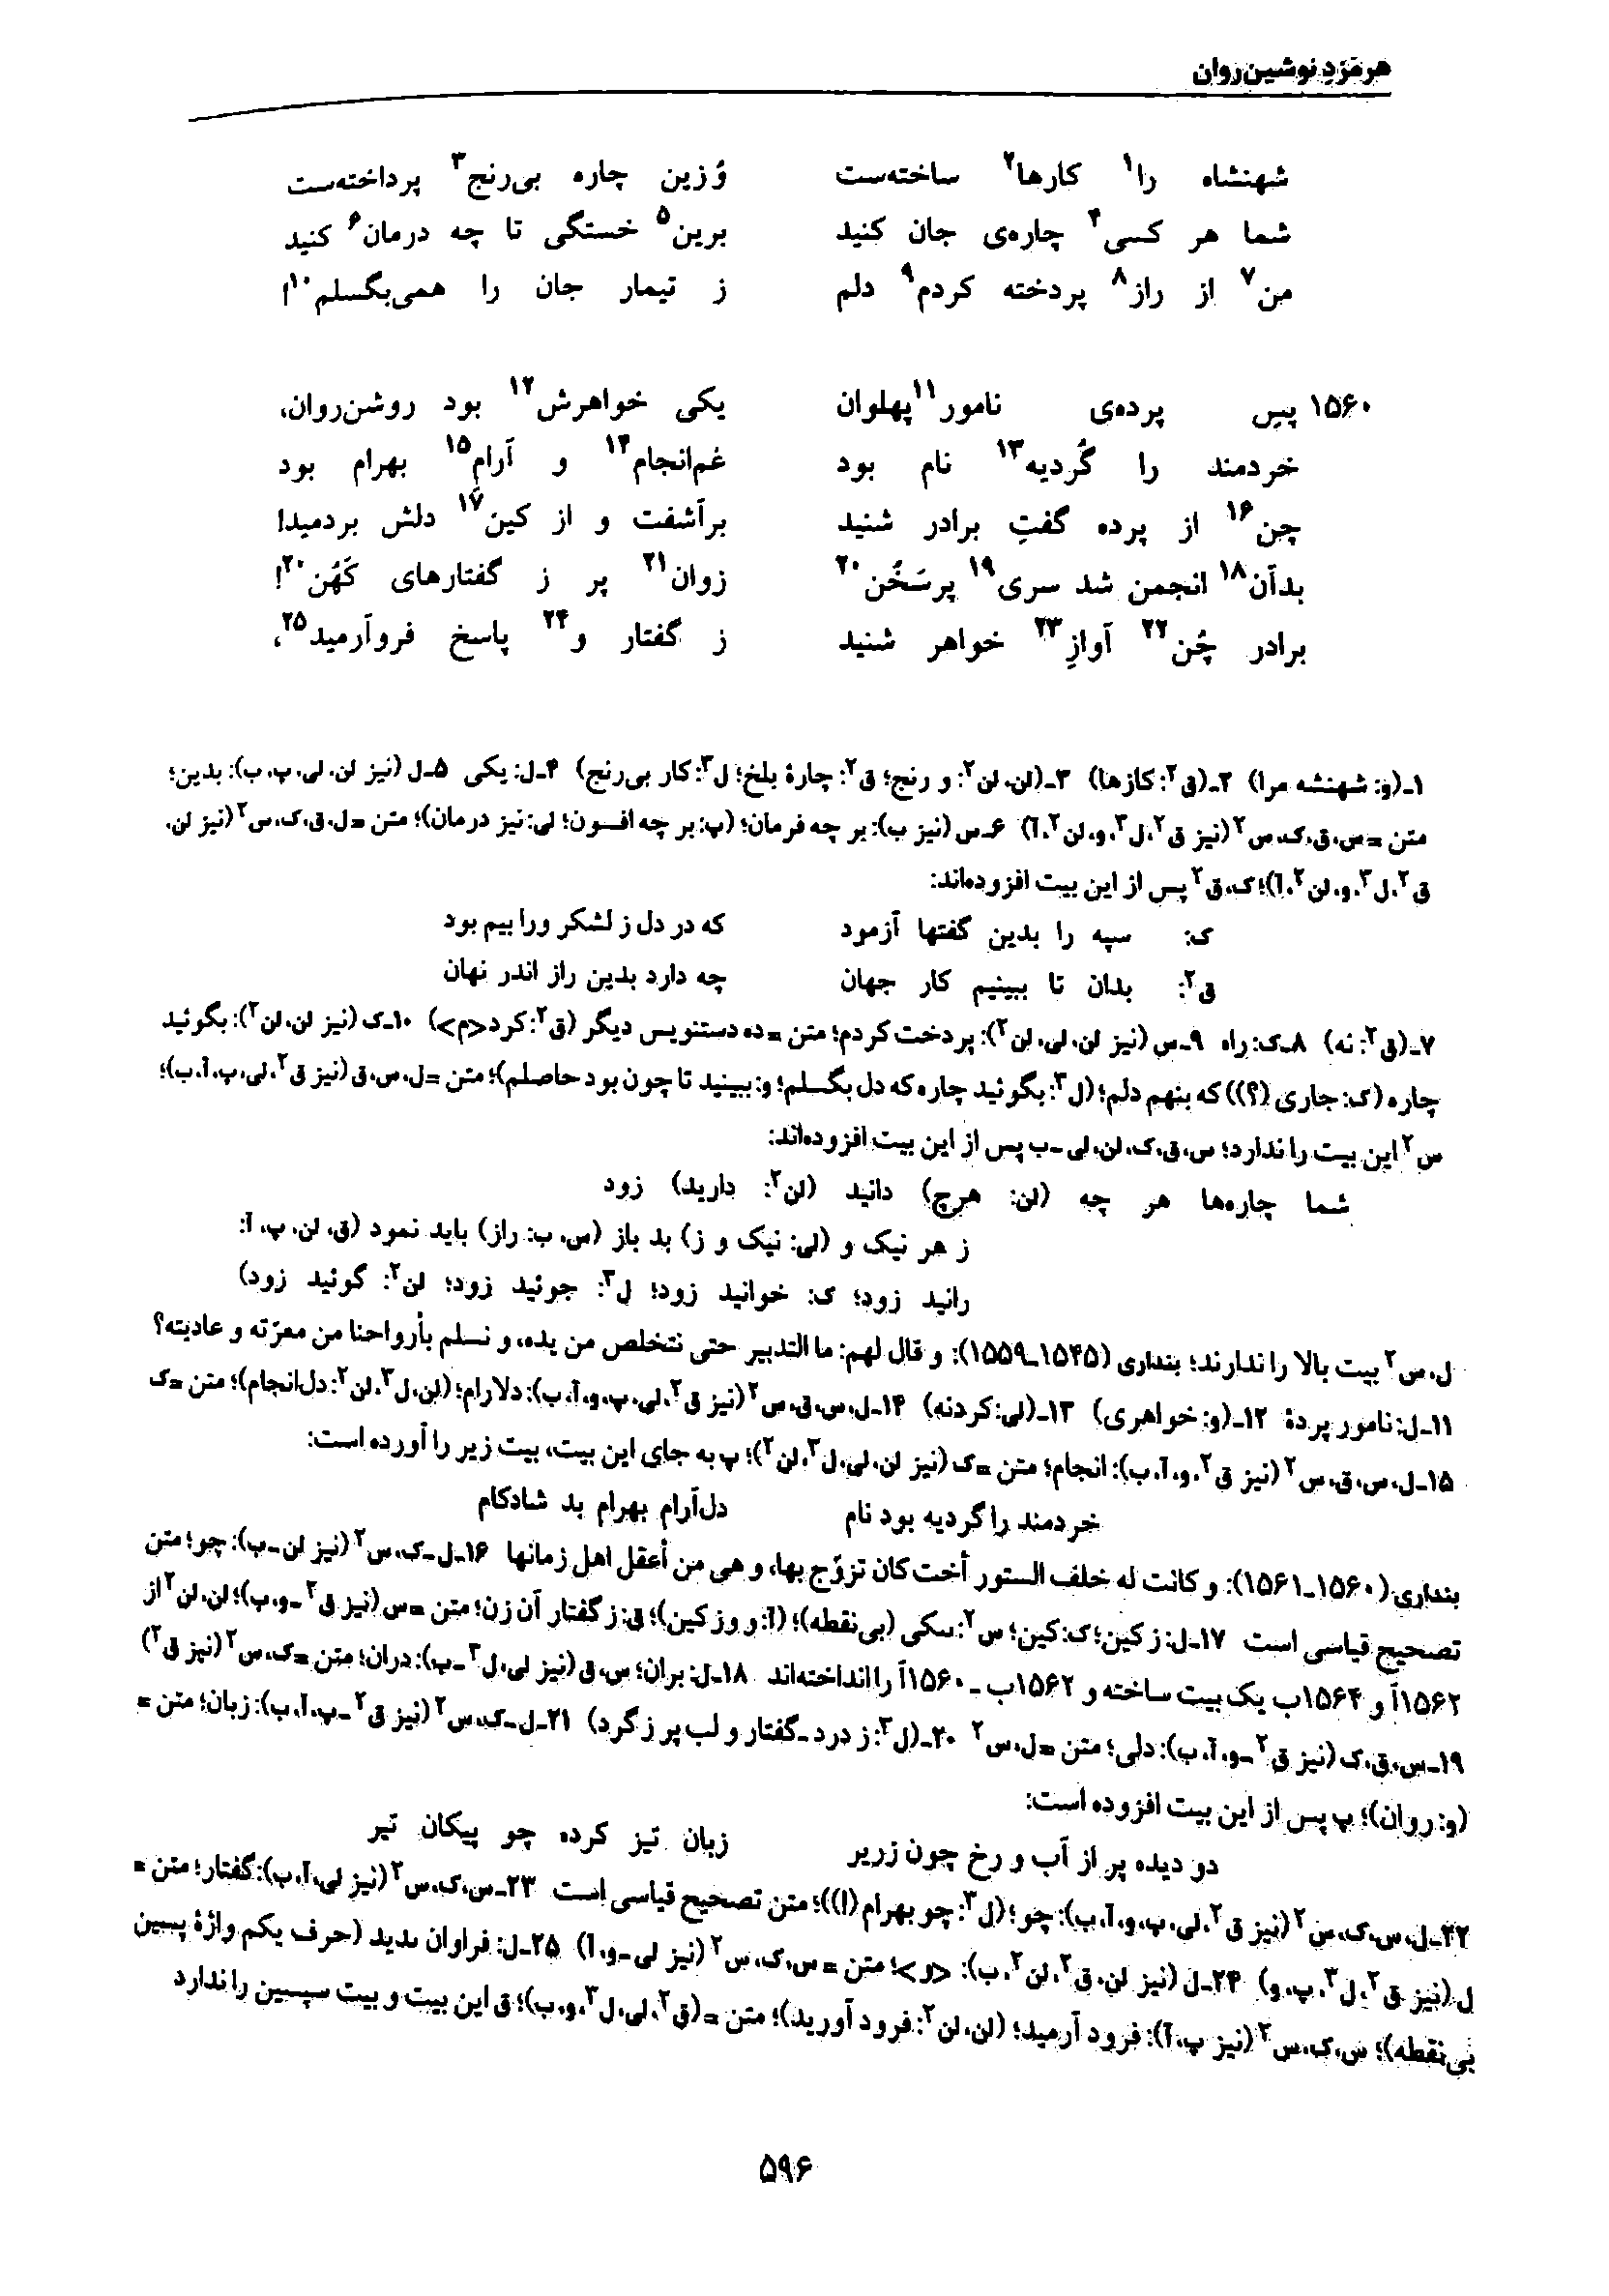 هرمزدِ نوشین‌روان
شهنشاه را۱ کارها۲ ساخته‌ست وُ زین چاره بی‌رنج۳ پرداخته‌ست
شما هر کسی۴ چاره‌ی جان کنید برین۵ خستگی تا چه درمان۶ کنید
من۷ از راز۸ پردخته کردم۹ دلم ز تیمار جان را همی‌بگسلم۱۰!
۱۵۶۰ پسِ پرده‌ی نامور۱۱ پهلوان یکی خواهرش۱۲ بود روشن‌روان،
خردمند را گُردیه۱۳ نام بود غم‌انجام۱۴ و آرامِ۱۵ بهرام بود
چن۱۶ از پرده گفتِ برادر شنید برآشفت و از کین۱۷ دلش بردمید!
بدآن۱۸ انجمن شد سری۱۹ پرسَخُن۲۰ زوان۲۱ پر ز گفتارهای کَهُن۲۰!
برادر چُن۲۲ آوازِ۲۳ خواهر شنید ز گفتار و۲۴ پاسخ فروآرمید۲۵،
۱ـ(و: شهنشه مرا) ۲ـ(ق۲: کازها) ۳ـ(لن، لن۲: و رنج؛ ق۲: چارهٔ بلخ؛ ل۳: کار بی‌رنج) ۴ـ ل: یکی ۵ـ ل (نیز لن، لی، پ، ب): بدین؛
متن = س، ق، ک، س۲ (نیز ق۲، ل۳، و، لن۲، آ) ۶ـ س (نیز ب): بر چه فرمان؛ (پ: بر چه افسون؛ لی: نیز درمان)؛ متن = ل، ق، ک، س۲ (نیز لن،
ق۲، ل۳، و، لن۲، آ)؛ ک، ق۲ پس از این بیت افزوده‌اند:
ک: سپه را بدین گفتها آزمود که در دل ز لشکر ورا بیم بود
ق۲: بدان تا ببینیم کار جهان چه دارد بدین راز اندر نهان
۷ـ(ق۲: نه) ۸ـ ک: راه ۹ـ س (نیز لن، لی، لن۲): پردخت کردم؛ متن = ده دستنویس دیگر (ق۲: کرد<م>) ۱۰ـ ک (نیز لن، لن۲): بگوئید
چاره (ک: جاری (؟)) که بنهم دلم؛ (ل۳: بگوئید چاره که دل بگسلم؛ و: ببینید تا چون بود حاصلم)؛ متن = ل، س، ق (نیز ق۲، لی، پ، آ، ب)؛
س۲ این بیت را ندارد؛ س، ق، ک، لن، لی ـ ب پس از این بیت افزوده‌اند:
شما چاره‌ها هر چه (لن: هرچ) دانید (لن۲: دارید) زود
ز هر نیک و (لی: نیک و ز) بد باز (س، ب: راز) باید نمود (ق، لن، پ، آ:
رانید زود؛ ک: خوانید زود؛ ل۳: جوئید زود؛ لن۲: گوئید زود)
ل، س۲ بیت بالا را ندارند؛ بنداری (۱۵۴۵ـ۱۵۵۹): و قال لهم: ما التدبیر حتی نتخلص من یده، و نسلم بأرواحنا من معرّته و عادیته؟
۱۱ـ ل: نامور پردهٔ ۱۲ـ(و: خواهری) ۱۳ـ(لی: کردنه) ۱۴ـ ل، س، ق، س۲ (نیز ق۲، لی، پ، و، آ، ب): دلارام؛ (لن، ل۳، لن۲: دل‌انجام)؛ متن = ک
۱۵ـ ل، س، ق، س۲ (نیز ق۲، و، آ، ب): انجام؛ متن = ک (نیز لن، لی، ل۳، لن۲)؛ پ به جای این بیت، بیت زیر را آورده است:
خردمند را گردیه بود نام دل‌آرام بهرام بد شادکام
بنداری (۱۵۶۰ـ۱۵۶۱): و کانت له خلف الستور أخت کان تزوّج بها، و هی من أعقل اهل زمانها ۱۶ـ ل ـ ک، س۲ (نیز لن ـ ب): چو؛ متن
تصحیح قیاسی است ۱۷ـ ل: ز کین؛ ک: کین؛ س۲: سکی (بی‌نقطه)؛ (آ: و وز کین)؛ ق: ز گفتار آن زن؛ متن = س (نیز ق۲ ـ و، ب)؛ لن، لن۲ از
۱۵۶۲آ و ۱۵۶۴ب یک بیت ساخته و ۱۵۶۲ب ـ ۱۵۶۰آ را انداخته‌اند ۱۸ـ ل: بران؛ س، ق (نیز لی، ل۳ ـ ب): دران؛ متن = ک، س۲ (نیز ق۲)
۱۹ـ س، ق، ک (نیز ق۲ ـ و، آ، ب): دلی؛ متن = ل، س۲ ۲۰ـ(ل۳: ز درد ـ گفتار و لب پر ز گرد) ۲۱ـ ل ـ ک، س۲ (نیز ق۲ ـ پ، آ، ب): زبان؛ متن =
(و: روان)؛ پ پس از این بیت افزوده است:
دو دیده پر از آب و رخ چون زریر زبان تیز کرده چو پیکان تیر
۲۲ـ ل، س، ک، س۲ (نیز ق۲، لی، پ، و، آ، ب): چو؛ (ل۳: چو بهرام (!))؛ متن تصحیح قیاسی است ۲۳ـ س، ک، س۲ (نیز لی، آ، ب): گفتار؛ متن =
ل (نیز ق۲، ل۳، پ، و) ۲۴ـ ل (نیز لن، ق۲، لن۲، ب): <و>؛ متن = س، ک، س۲ (نیز لی ـ و، آ) ۲۵ـ ل: فراوان ىدید (حرف یکم واژهٔ پسین
بی‌نقطه)؛ س، ک، س۲ (نیز پ، آ): فرود آرمید؛ (لن، لن۲: فرود آورید)؛ متن = (ق۲، لی، ل۳، و، ب)؛ ق این بیت و بیت سپسین را ندارد
۵۹۶